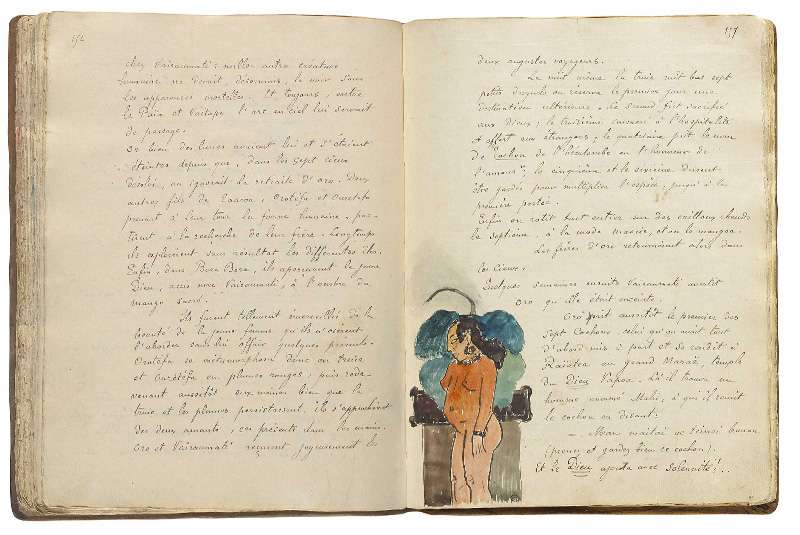 152
chez Vaïraumati: nulle autre créature
humaine ne devait, désormais, la voir sous
les apparences mortelles. Et toujours, entre
le Païa et l'autel l'arc en ciel lui servait
de passage.
Or bien des lunes avaient lui et s'étaient
éteintes depuis que, dans les sept cieux
désolés, on ignorait la retraite d'Oro. Deux
autres fils de Taaroa, Orotéfa et Ourétéfa
prenant à leur tour la forme humaine, par-
tirent à la recherche de leur frère. Longtemps
ils explorèrent sans résultat les différentes îles.
Enfin, dans Bora Bora, ils aperçurent le jeune
Dieu, assis avec Vaïraumati, à l'ombre du
mango sacré.
Ils furent tellement émerveillés de la
beauté de la jeune femme qu'ils n'osèrent
l'aborder sans lui offrir quelques présents.
Orotéfa se métamorphosa donc en truie
et Ourétéfa en plumes rouges, puis rede-
venant aussitôt eux mêmes bien que la
truie et les plumes persistassent, ils s'approchèrent
des deux amants, ces présents dans les mains.
Oro et Vaïraumati reçurent joyeusement les
deux augustes voyageurs.
La nuit même la truie mit bas sept
petits desquels on réserva le premier pour une
destination ultérieure. Le second fut sacrifié
aux Dieux; le troisième consacré à l'hospitalité
et offert aux étrangers; le quatrième prit le nom
de Cochon de l'hécatombe en l'honneur de
l'amour; le cinquième et le sixième durent
être gardés pour multiplier l'espèce, jusqu'à la
première portée.
Enfin on rotit tout entier sur des cailloux chauds
le septième, à la mode maorie, et on le mangea.
Les frères d'Oro retournèrent alors dans
les Cieux.
Quelques semaines ensuite Vaïraumati avertit
Oro qu'elle était enceinte.
Oro prit aussitôt le premier des
Sept Cochons celui qu'on avait tout
d'abord mis à part et se rendit à
Raiatea au grand Maraë, temple
du Dieu Vapoa. Là il trouva un
homme nommé Mahi, à qui il remit
le cochon en disant:
(prenez et gardez bien ce cochon).
Et le Dieu ajouta avec solennité: